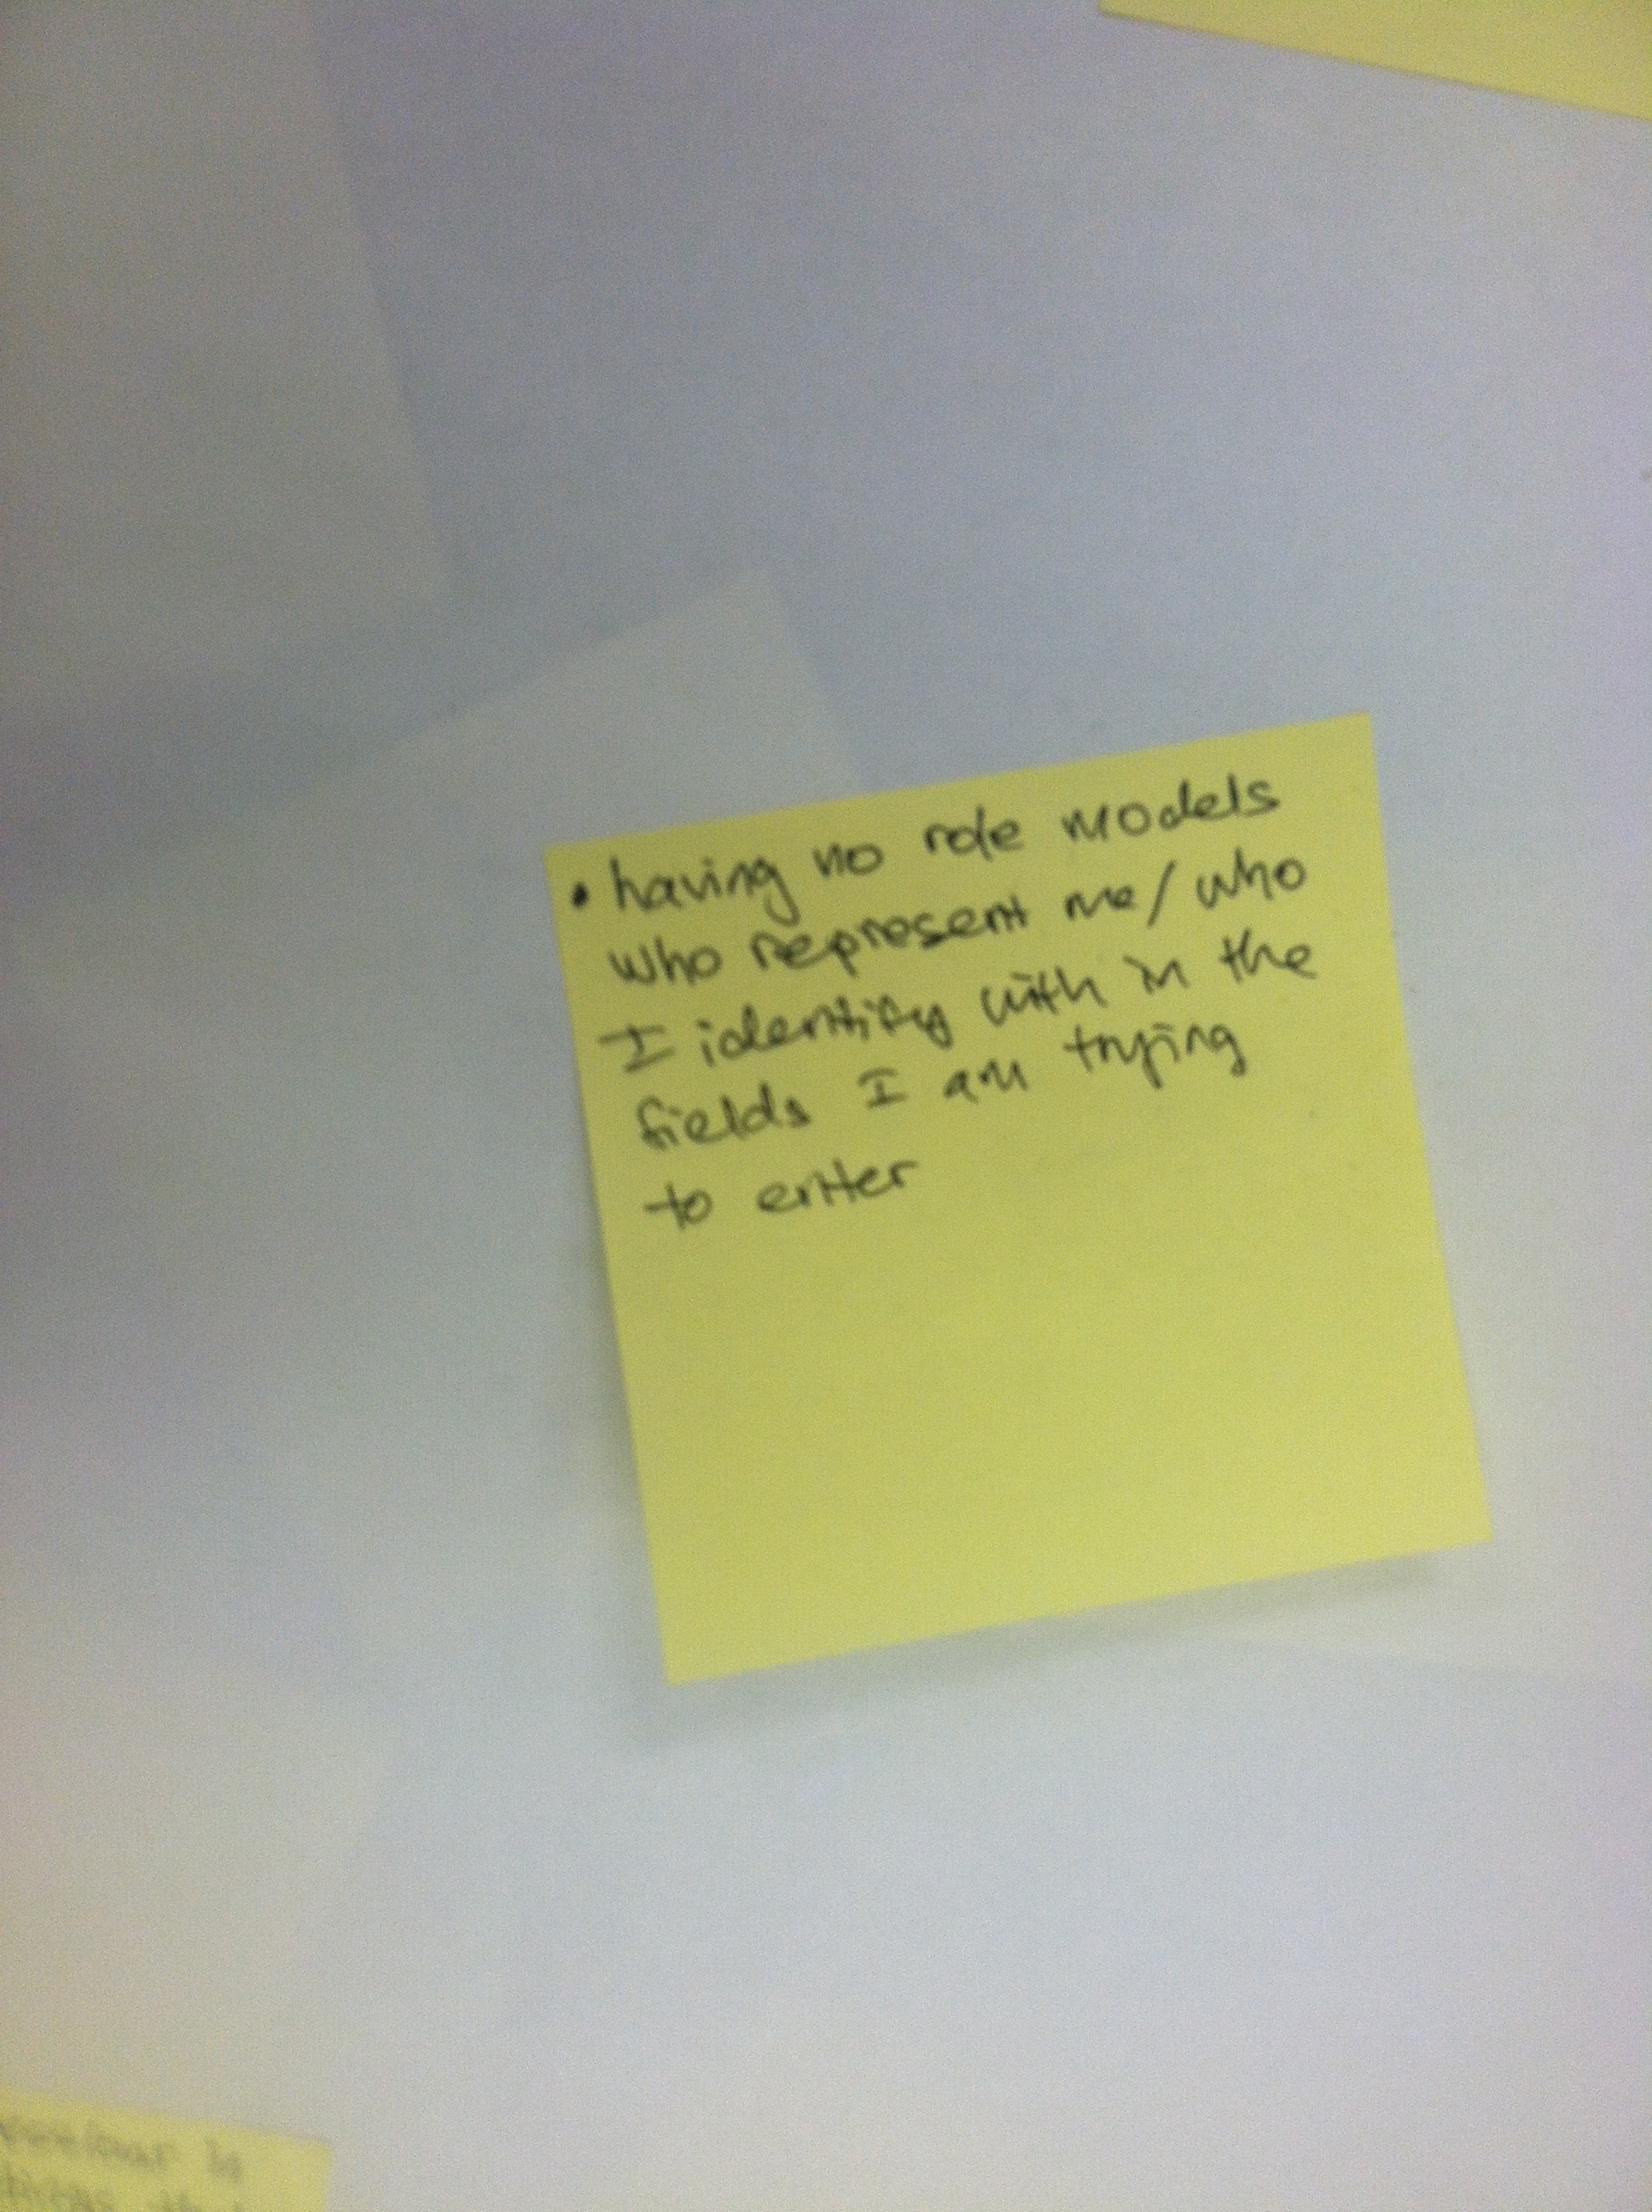 • having no role models
who represent me/who
I identify with in the
fields I am trying
to enter
is